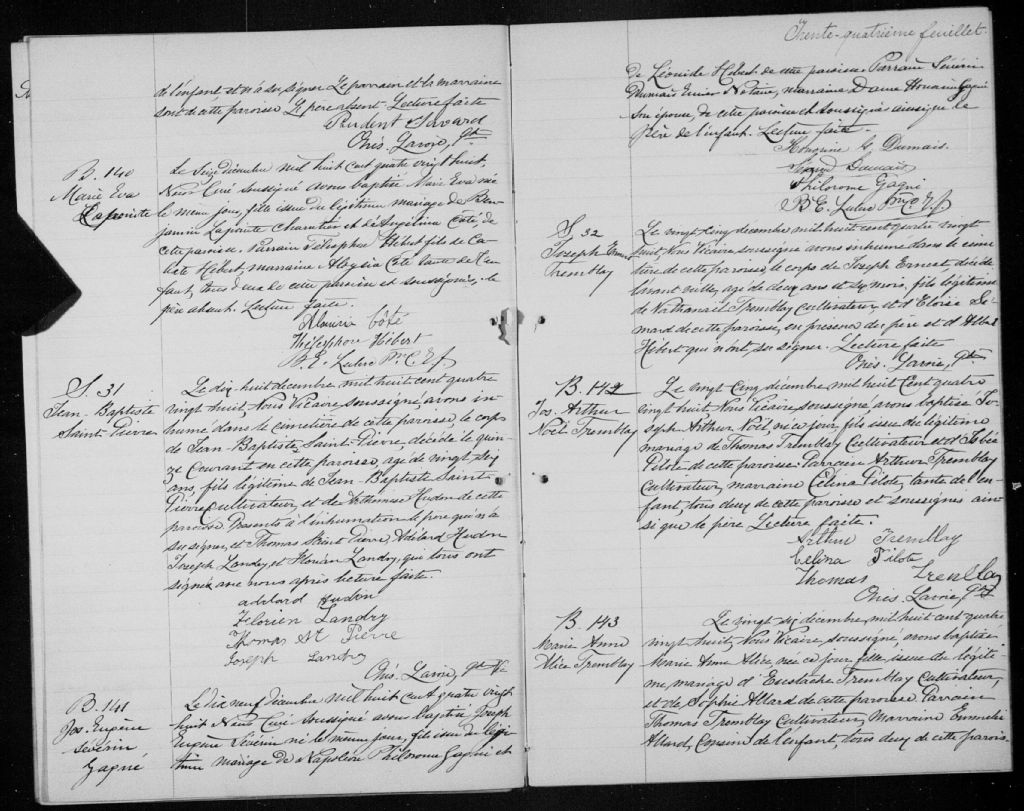 de l'enfant et n'a su signer. Le parrain et la marraine
sont de cette paroisse. Le père absent. Lecture faite
Prudent Savard
Onés. Lavoie, Ptre
B. 140
Marie Eva
Lapointe
Le seize décembre mil huit cent quatre vingt huit,
Nous Curé soussigné avons baptisé Marie Eva née
le même jour, fille issue du légitime mariage de Ben-
jamin Lapointe et d'Angelina Coté, de
cette paroisse. Parrain Hébert fils de Ca-
Hébert, marraine Aloysia Coté tante de l'en-
fant, tous deux de cette paroisse et soussignés, le
père absent. Lecture faite.
Côté
Thélesphore Hébert
B. E. Leclerc Ptre
S. 31
Jean-Baptiste
Saint-Pierre
Le dix huit décembre mil huit cent quatre
vingt huit Nous Vicaire soussigné, avons in-
humé dans le cimetière de cette paroisse, le corps
de Jean-Baptiste Saint-Pierre, décédé le quin-
ze courant en cette paroisse, agé de vingt
ans, fils légitime de Jean-Baptiste Saint
Pierre cultivateur, et de Arthémise Hudon de cette
paroisse Presents à l'inhumation le père qui n'a
su signer, et Thomas Saint Pierre, Adélard Hudon
Joseph Landry, et Florian Landry, qui tous ont
signé avec nous après lecture faite.
adélard Hudon
Florien Landry
Thomas St Pierre
Joseph Landry
Onés. Lavoie, Ptre Vic
B. 141
Jos. Eugène
Sévérin
Gagné
Le dix neuf décembre mil huit cent quatre vingt
huit Nous Curé soussigné avons baptisé Joseph
Eugène Sévérin né le même jour, fils issu du légi-
time mariage de Napoléon Philorome Gagné et
Trente-quatrième feuillet.
de Léonide Hébert de cette paroisse. Parrain Sévérin
Dumais Notaire, marraine Dame Honorine Gagné
son épouse, de cette paroisse et soussignés ainsi que le
Père de l'enfant. Lecture faite.
Honorine G. Dumais.
Dumais
Philorome Gagné
B. E. Leclerc Ptre
S. 32
Joseph Ernest
Tremblay
Le vingt cinq décembre mil huit cent quatre vingt
huit, Nous Vicaire soussigné avons inhumé dans le cime-
tière de cette paroisse, le corps de Joseph Ernest, décédé
l'avant veille, agé de deux ans et six mois, fils légitime
de Nathanaël Tremblay cultivateur et d'Eloïse Si-
mard de cette paroisse, en présence du père et d'Albert
Hébert qui n'ont su signer. Lecture faite
Onés. Lavoie, Ptre
B. 142
Jos. Arthur
Noël Tremblay
Le vingt cinq décembre mil huit cent quatre
vingt huit Nous Vicaire soussigné, avons baptisé Jo-
seph Arthur Noël, né ce jour, fils issu du légitime
mariage de Thomas Tremblay cultivateur et d'
Pilote de cette paroisse. Parrain Arthur Tremblay
cultivateur, marraine Célina Pilote, tante de l'en-
fant, tous deux de cette paroisse et soussignés ain-
si que le père Lecture faite.
Arthur Tremblay
Célina Pilote
Thomas Tremblay
Onés. Lavoie, Ptre
B. 143
Marie Anne
Alice Tremblay
Le vingt six décembre mil huit cent quatre
vingt huit, Nous Vicaire, soussigné, avons baptisé
Marie Anne Alice née ce jour, fille issue du légiti-
me mariage d'Eustache Tremblay cultivateur,
et de Sophie Allard de cette paroisse. Parrain
Thomas Tremblay cultivateur, Marraine
Allard, cousin de l'enfant, tous deux de cette parois-